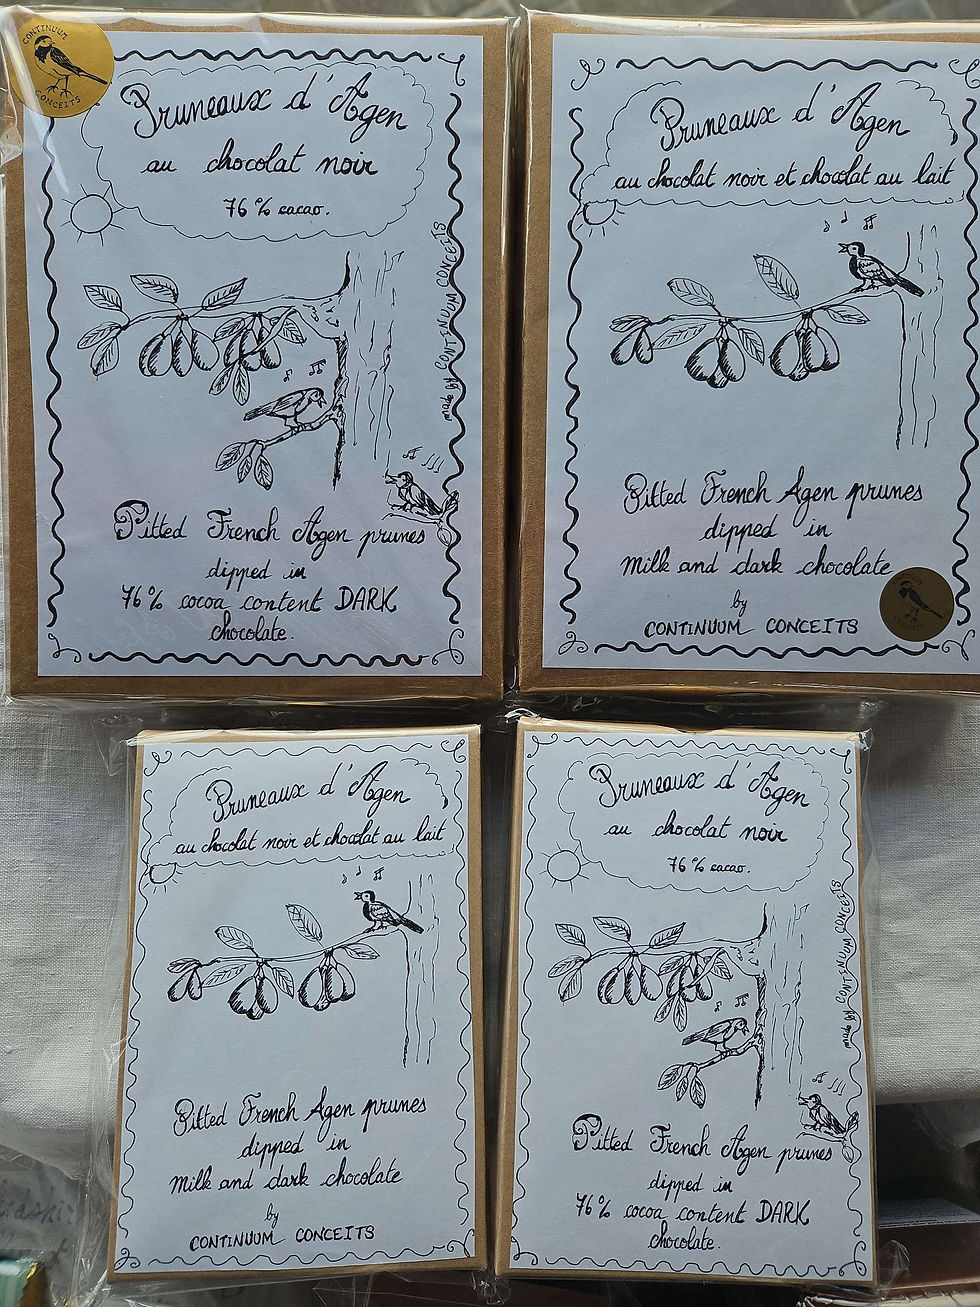 CONTINUUM
CONCEITS
Pruneaux d'Agen
au chocolat noir
76 % cacao.
made by CONTINUUM CONCEITS
Pitted French Agen prunes
dipped in
76 % cocoa content DARK
chocolate.
Pruneaux d'Agen
au chocolat noir et chocolat au lait
Pitted French Agen prunes
dipped in
milk and dark chocolate
by
CONTINUUM CONCEITS
CONTINUUM
CONCEITS
Pruneaux d'Agen
au chocolat noir et chocolat au lait
Pitted French Agen prunes
dipped in
milk and dark chocolate
by
CONTINUUM CONCEITS
Pruneaux d'Agen
au chocolat noir
76 % cacao.
made by CONTINUUM CONCEITS
Pitted French Agen prunes
dipped in
76 % cocoa content DARK
chocolate.